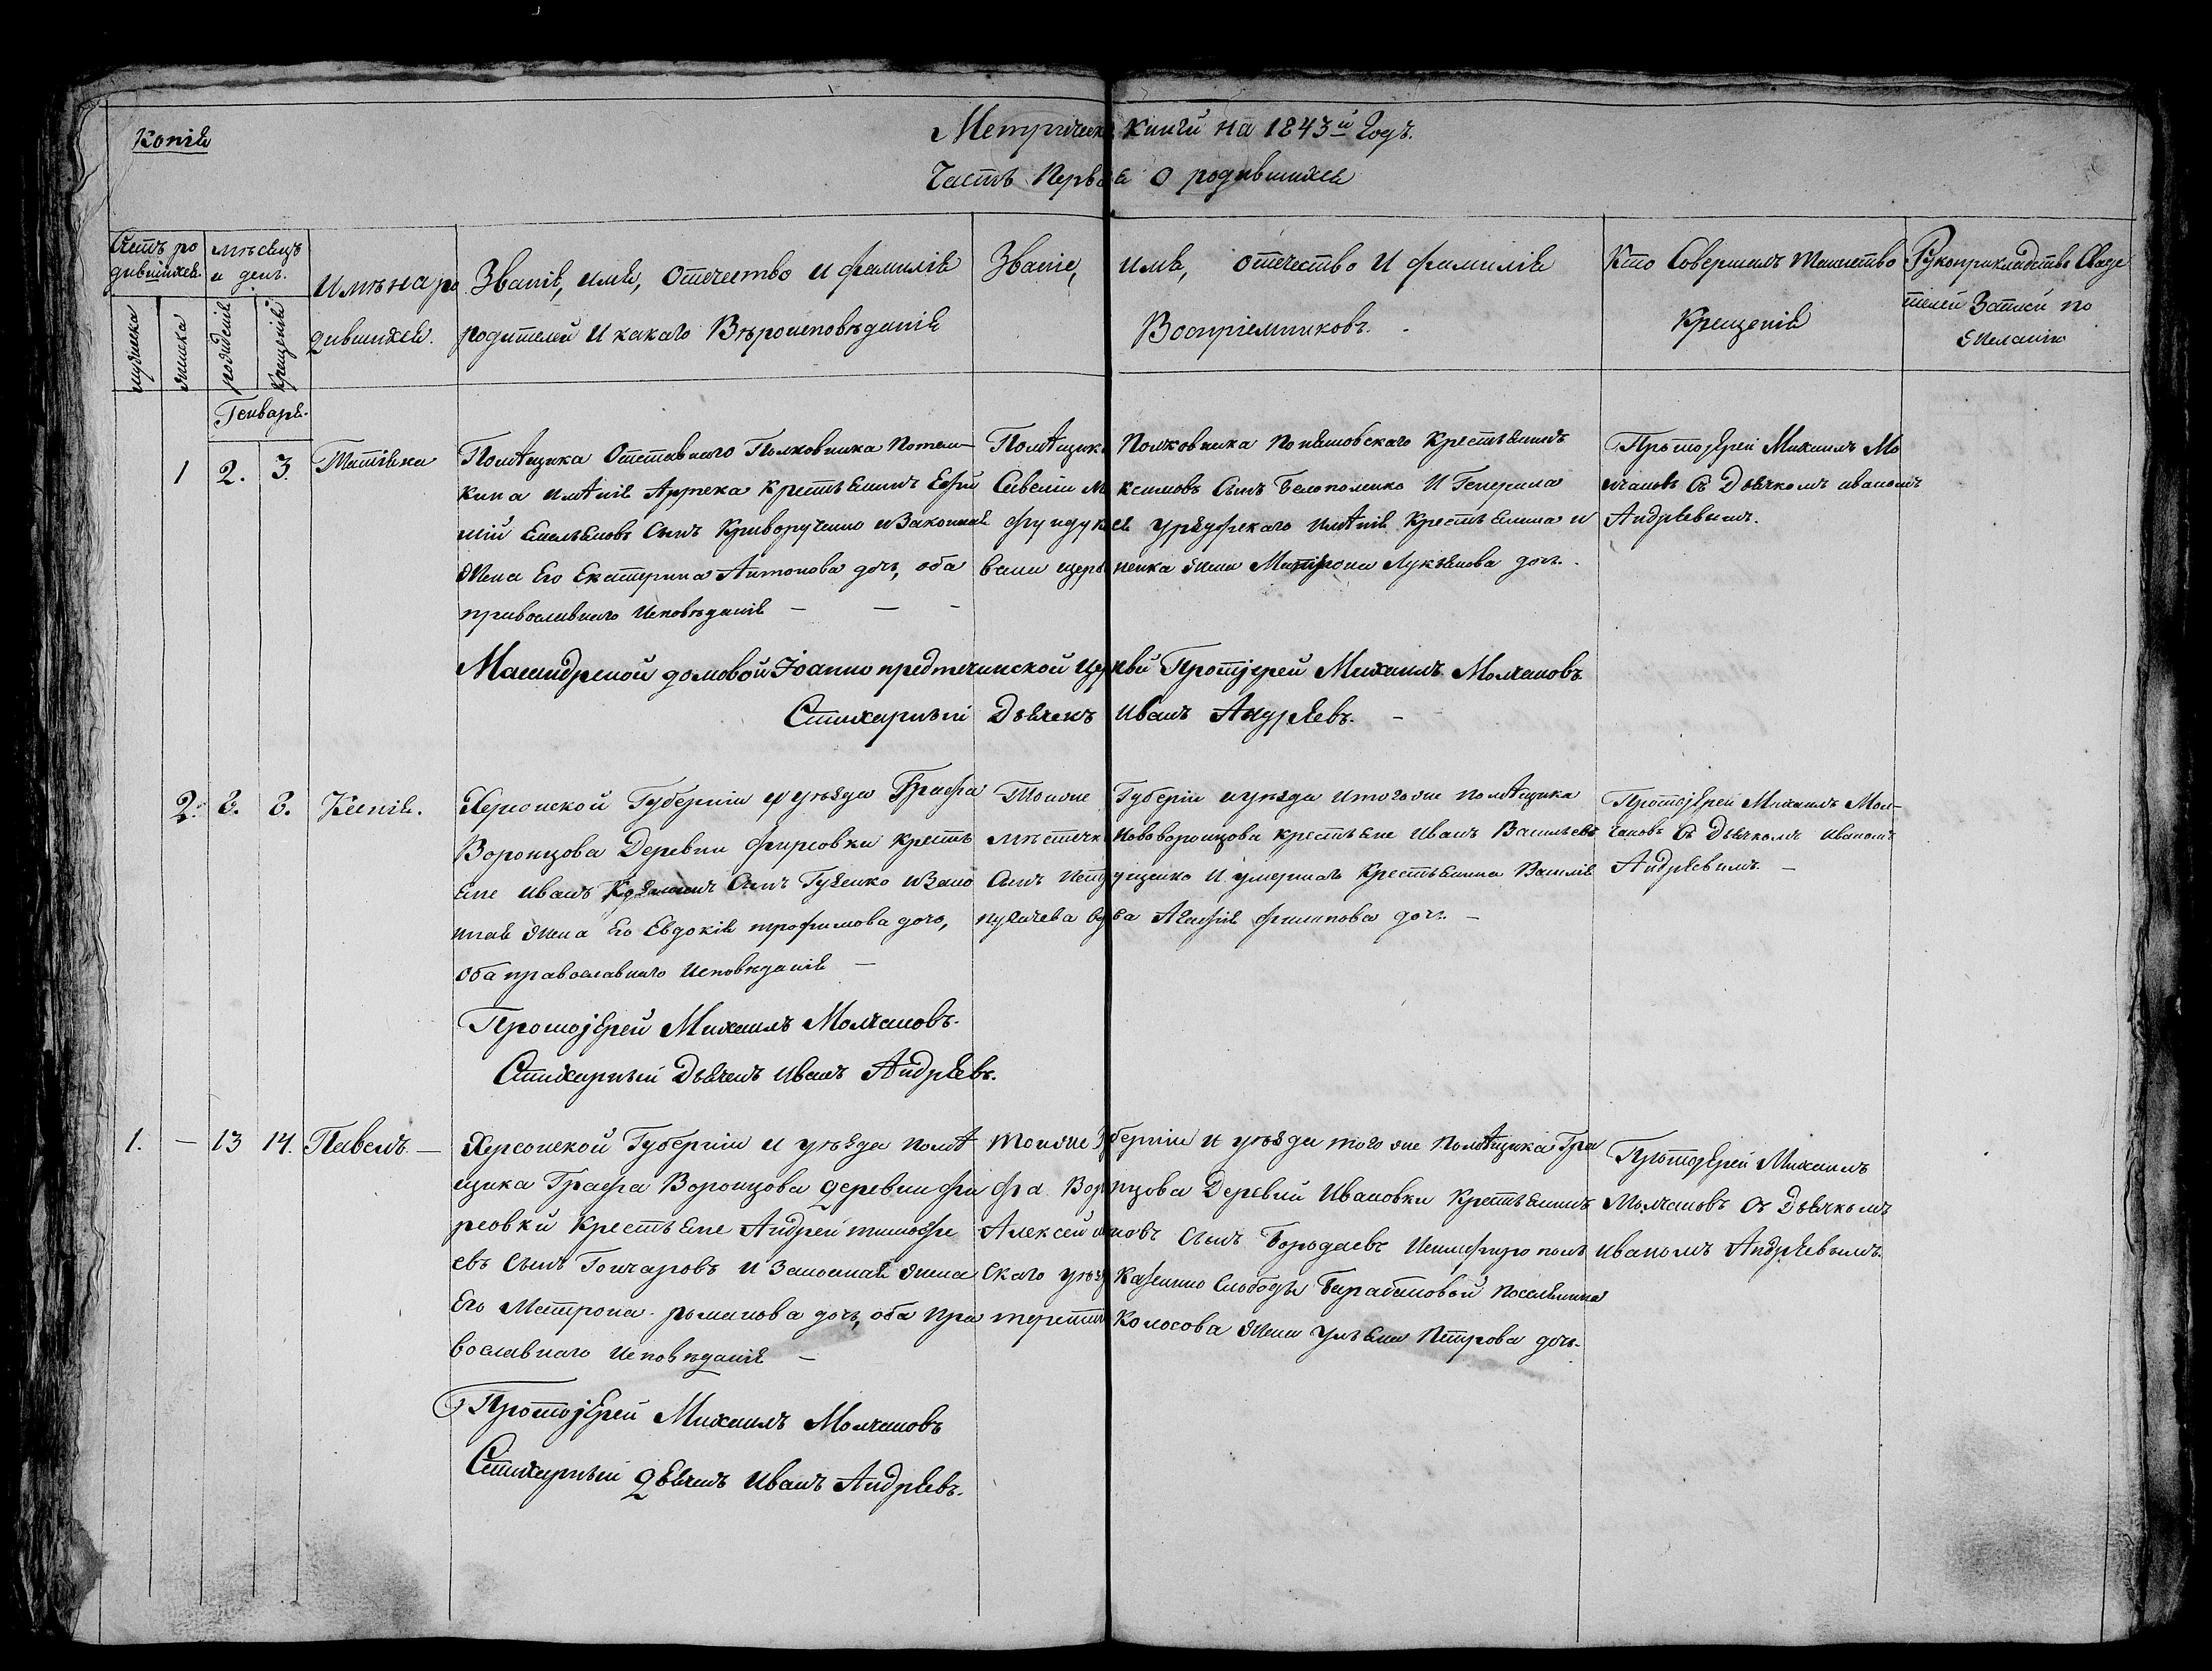 Копія
Метрическ книги на 1843й Годъ.
Часть Перва я О родившихся
Счетъ ро
дившихся.
мѣсяцъ
и день.
мужеска
женска
рожденія
Крещенія
Имѣна ро
дившихся.
Званіе, имя, Отечество и фамилія
родителей И какаго Вѣроисповѣданія
Званіе, имя, отечество И фамилія
Воспріемниковъ.
Кто Совершалъ Таинство
Крещенія
Рукоприкладство Свиде
телей Записи по
Желанію
Генваря.
1
2.
3.
Помѣщика Отставнаго Полковника Потем-
кина имѣнія Артека крестьянинъ Ефи
мій Емельяновъ Сынъ Криворученко и Законная
Жена Его Екатерина Антонова дочь, оба
православнаго Исповѣданія — — —
Помѣщик Полковника крестьянинъ
Савелій М ксимовъ Сынъ Белопоменко И Генерала
Фундук ея Урзуфскаго имѣнія Крестьянина И
вана щер ненка Жена Матрона Лукьянова дочь.
Протоjерей Михаилъ Мо
лчановъ Съ Дьячкомъ иваномъ
Андреевымъ.
Масандрской домовой Іоанно предтечинской Цер кви Протоjерей Михаилъ Молчановъ
Стихарный Дьячекъ Иванъ Андреевъ. —
2.
8.
8.
Ксенія.
Херсонской Губерніи и уѣзда Графа
Воронцова Деревни Фирсовки крестья
яне иванъ Сынъ Гузенко и Зако
нная жена Его Евдокія трофимова дочь,
Оба православнаго Исповѣданія —
Тоиже Губерніи и уѣзда И тогоже помѣщика
мѣстечк Нововоронцова крестьяне Иванъ Васильевъ
Сынъ И умершаго Крестьянина Василія
в ва Агафія филипова дочь. —
Протоjерей Михаилъ Мол-
чановъ Съ Дьячкомъ иваномъ
Андреевымъ. —
Протоjерей Михаилъ Молчановъ.
Стихарный Дьячекъ Иванъ Андреевъ.
1.
—
13
14.
Павелъ. —
Херсонской Губерніи и уѣзда помѣ
щика Графа Воронцова деревни Фи
рсовки Крестьяне Андрей тимофе
евъ сынъ Гончаровъ и Законная жена
Его Матрона романова дочь, оба Пра
вославнаго Исповѣданія —
Тоиже Г берніи и уѣзда того же Помѣщика Гра
фа Вор нцова Деревни Ивановки Крестьянинъ
Алексей новъ сынъ Бородаевъ
скаго уѣз Казенно Слободы Барабановой поселянина
Колосова Жена Ульяна Петрова дочь.
Протоjерей Михаилъ
Молчановъ Съ Дьячкомъ
иваномъ Андреевымъ.
Протоjерей Михаилъ Молчановъ
Стихарный Дьячекъ Иванъ Андреевъ.